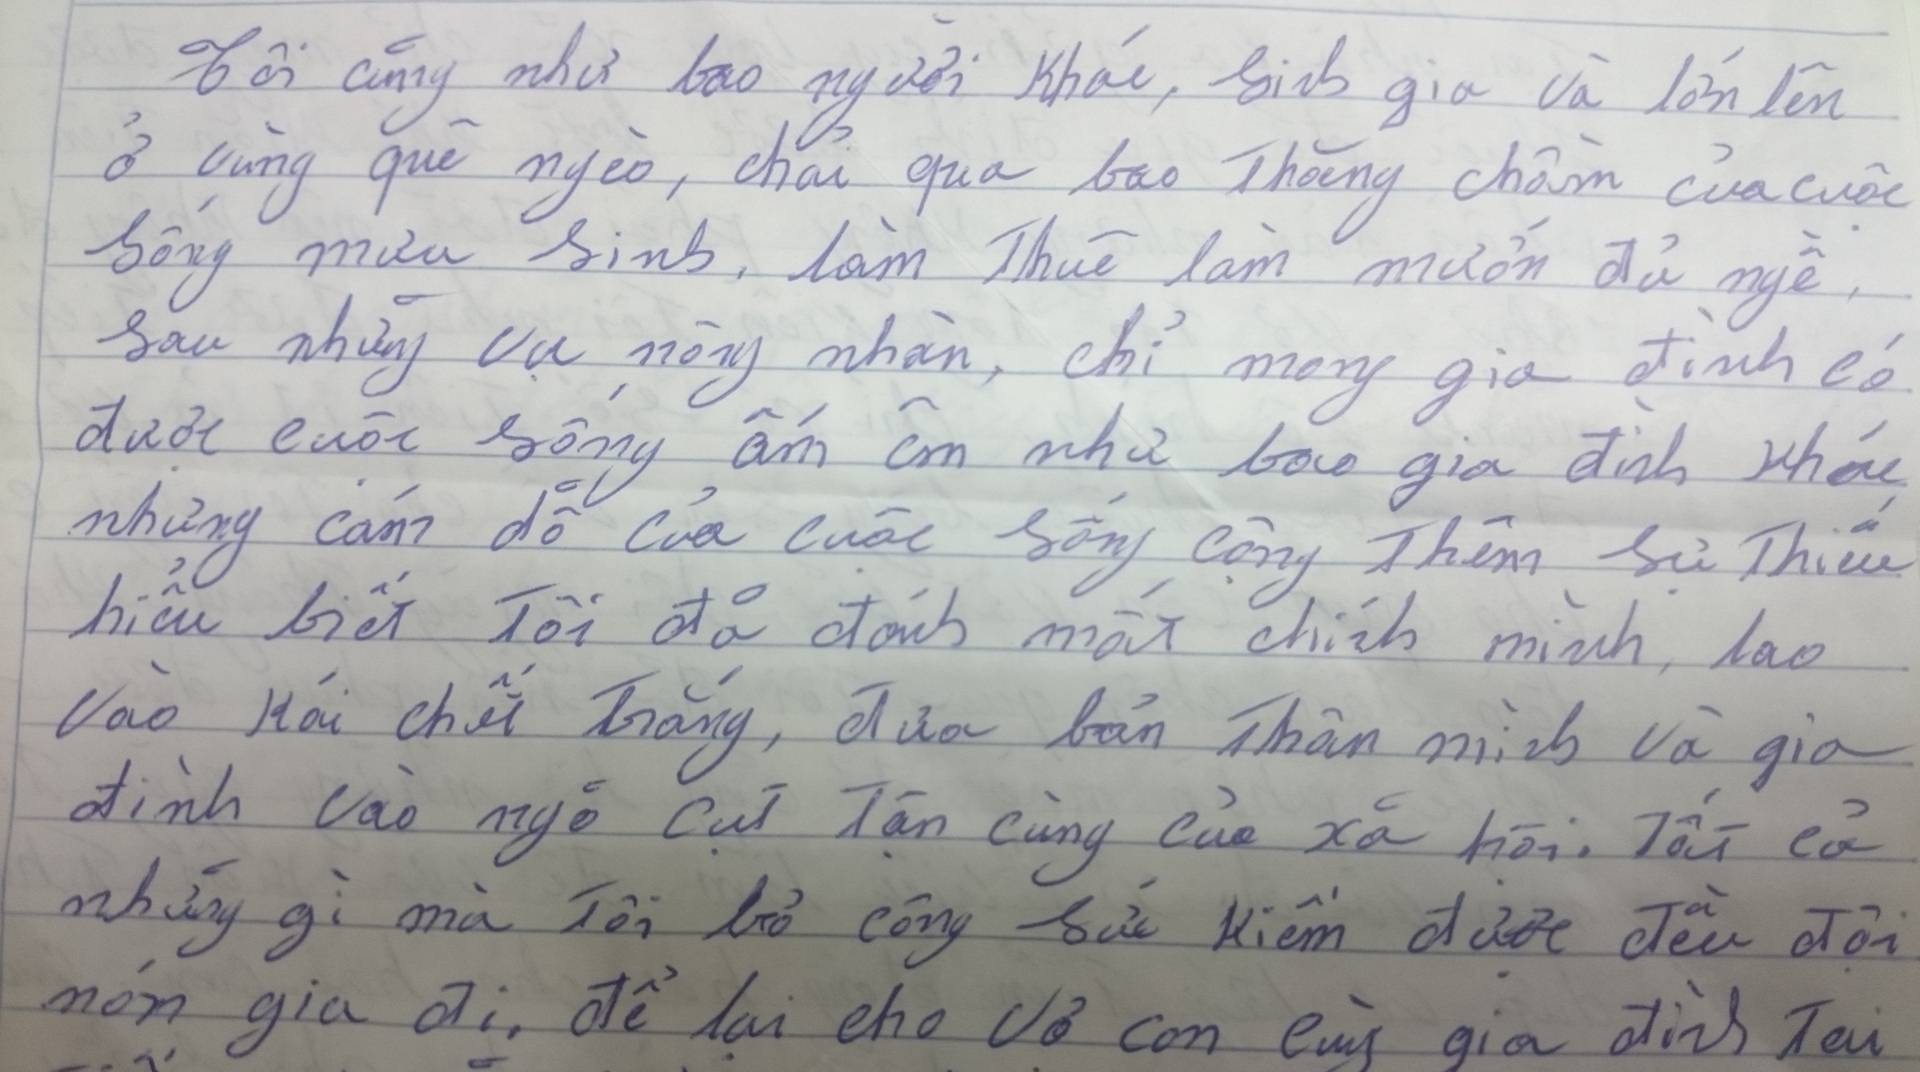 Tôi cũng như bao người khác, sinh gia và lớn lên
ở vùng quê ngèo, chải qua bao thăng chầm của cuộc
sống mưu sinh, làm thuê làm mướn đủ ngề,
sau những vụ nông nhàn, chỉ mong gia đình có
được cuộc sống ấm êm như bao gia đình khác,
nhưng cám dỗ của cuộc sống cộng thêm sự thiếu
hiểu biết tôi đã đánh mất chính mình, lao
vào kái chết trắng, đưa bản thân mình và gia
đình vào ngõ cụt tận cùng của xã hội. Tất cả
những gì mà tôi bỏ công sức kiếm được đều đội
nón gia đi, để lại cho vở con cùng gia đình tai